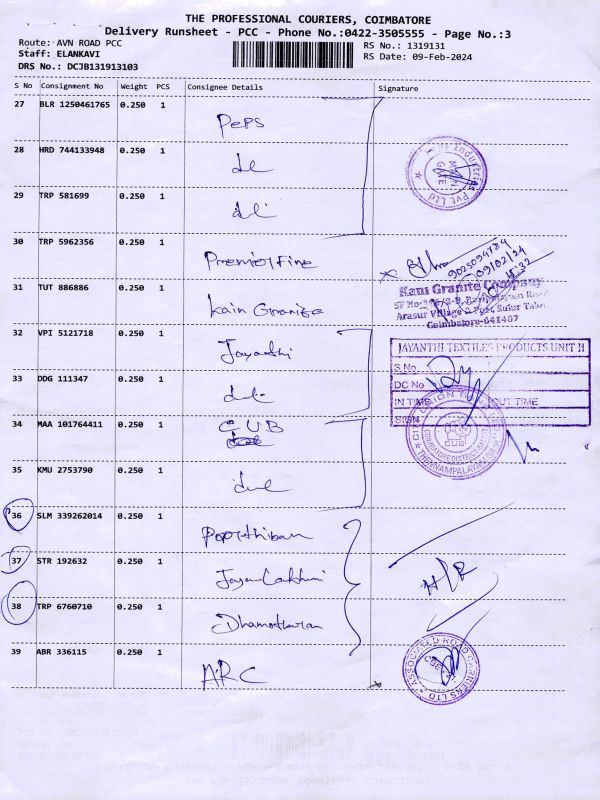 THE PROFESSIONAL COURIERS, COIMBATORE
Delivery Runsheet - PCC - Phone No.:0422-3505555 - Page No.:3
Route: AVN ROAD PCC
Staff: ELANKAVI
DRS No.: DCJB131913103
RS No.: 1319131
RS Date: 09-Feb-2024
S No Consignment No Weight PCS Consignee Details Signature
27 BLR 1250461765 0.250 1 Peps
28 HRD 744133948 0.250 1
29 TRP 581699 0.250 1
Industries Pvt Ltd
30 TRP 5962356 0.250 1 Premier Fine
9025094784
09/02/24
31 TUT 886886 0.250 1 Kain Granite
Kani Granite Company
Coimbatore-641407
32 VPI 5121718 0.250 1 Jayanthi
JAYANTHI TEXTILES PRODUCTS UNIT II
S.No.
33 DDG 111347 0.250 1
DC No
IN TIME OUT TIME
SIGN
34 MAA 101764411 0.250 1 CUB
CITY UNION
35 KMU 2753790 0.250 1
36 SLM 339262014 0.250 1 Parthiban
37 STR 192632 0.250 1 Jaya Lakshmi
38 TRP 6760710 0.250 1 Dhamotharan
39 ABR 336115 0.250 1 ARC
ASSOCIATED ROAD CARRIERS LTD